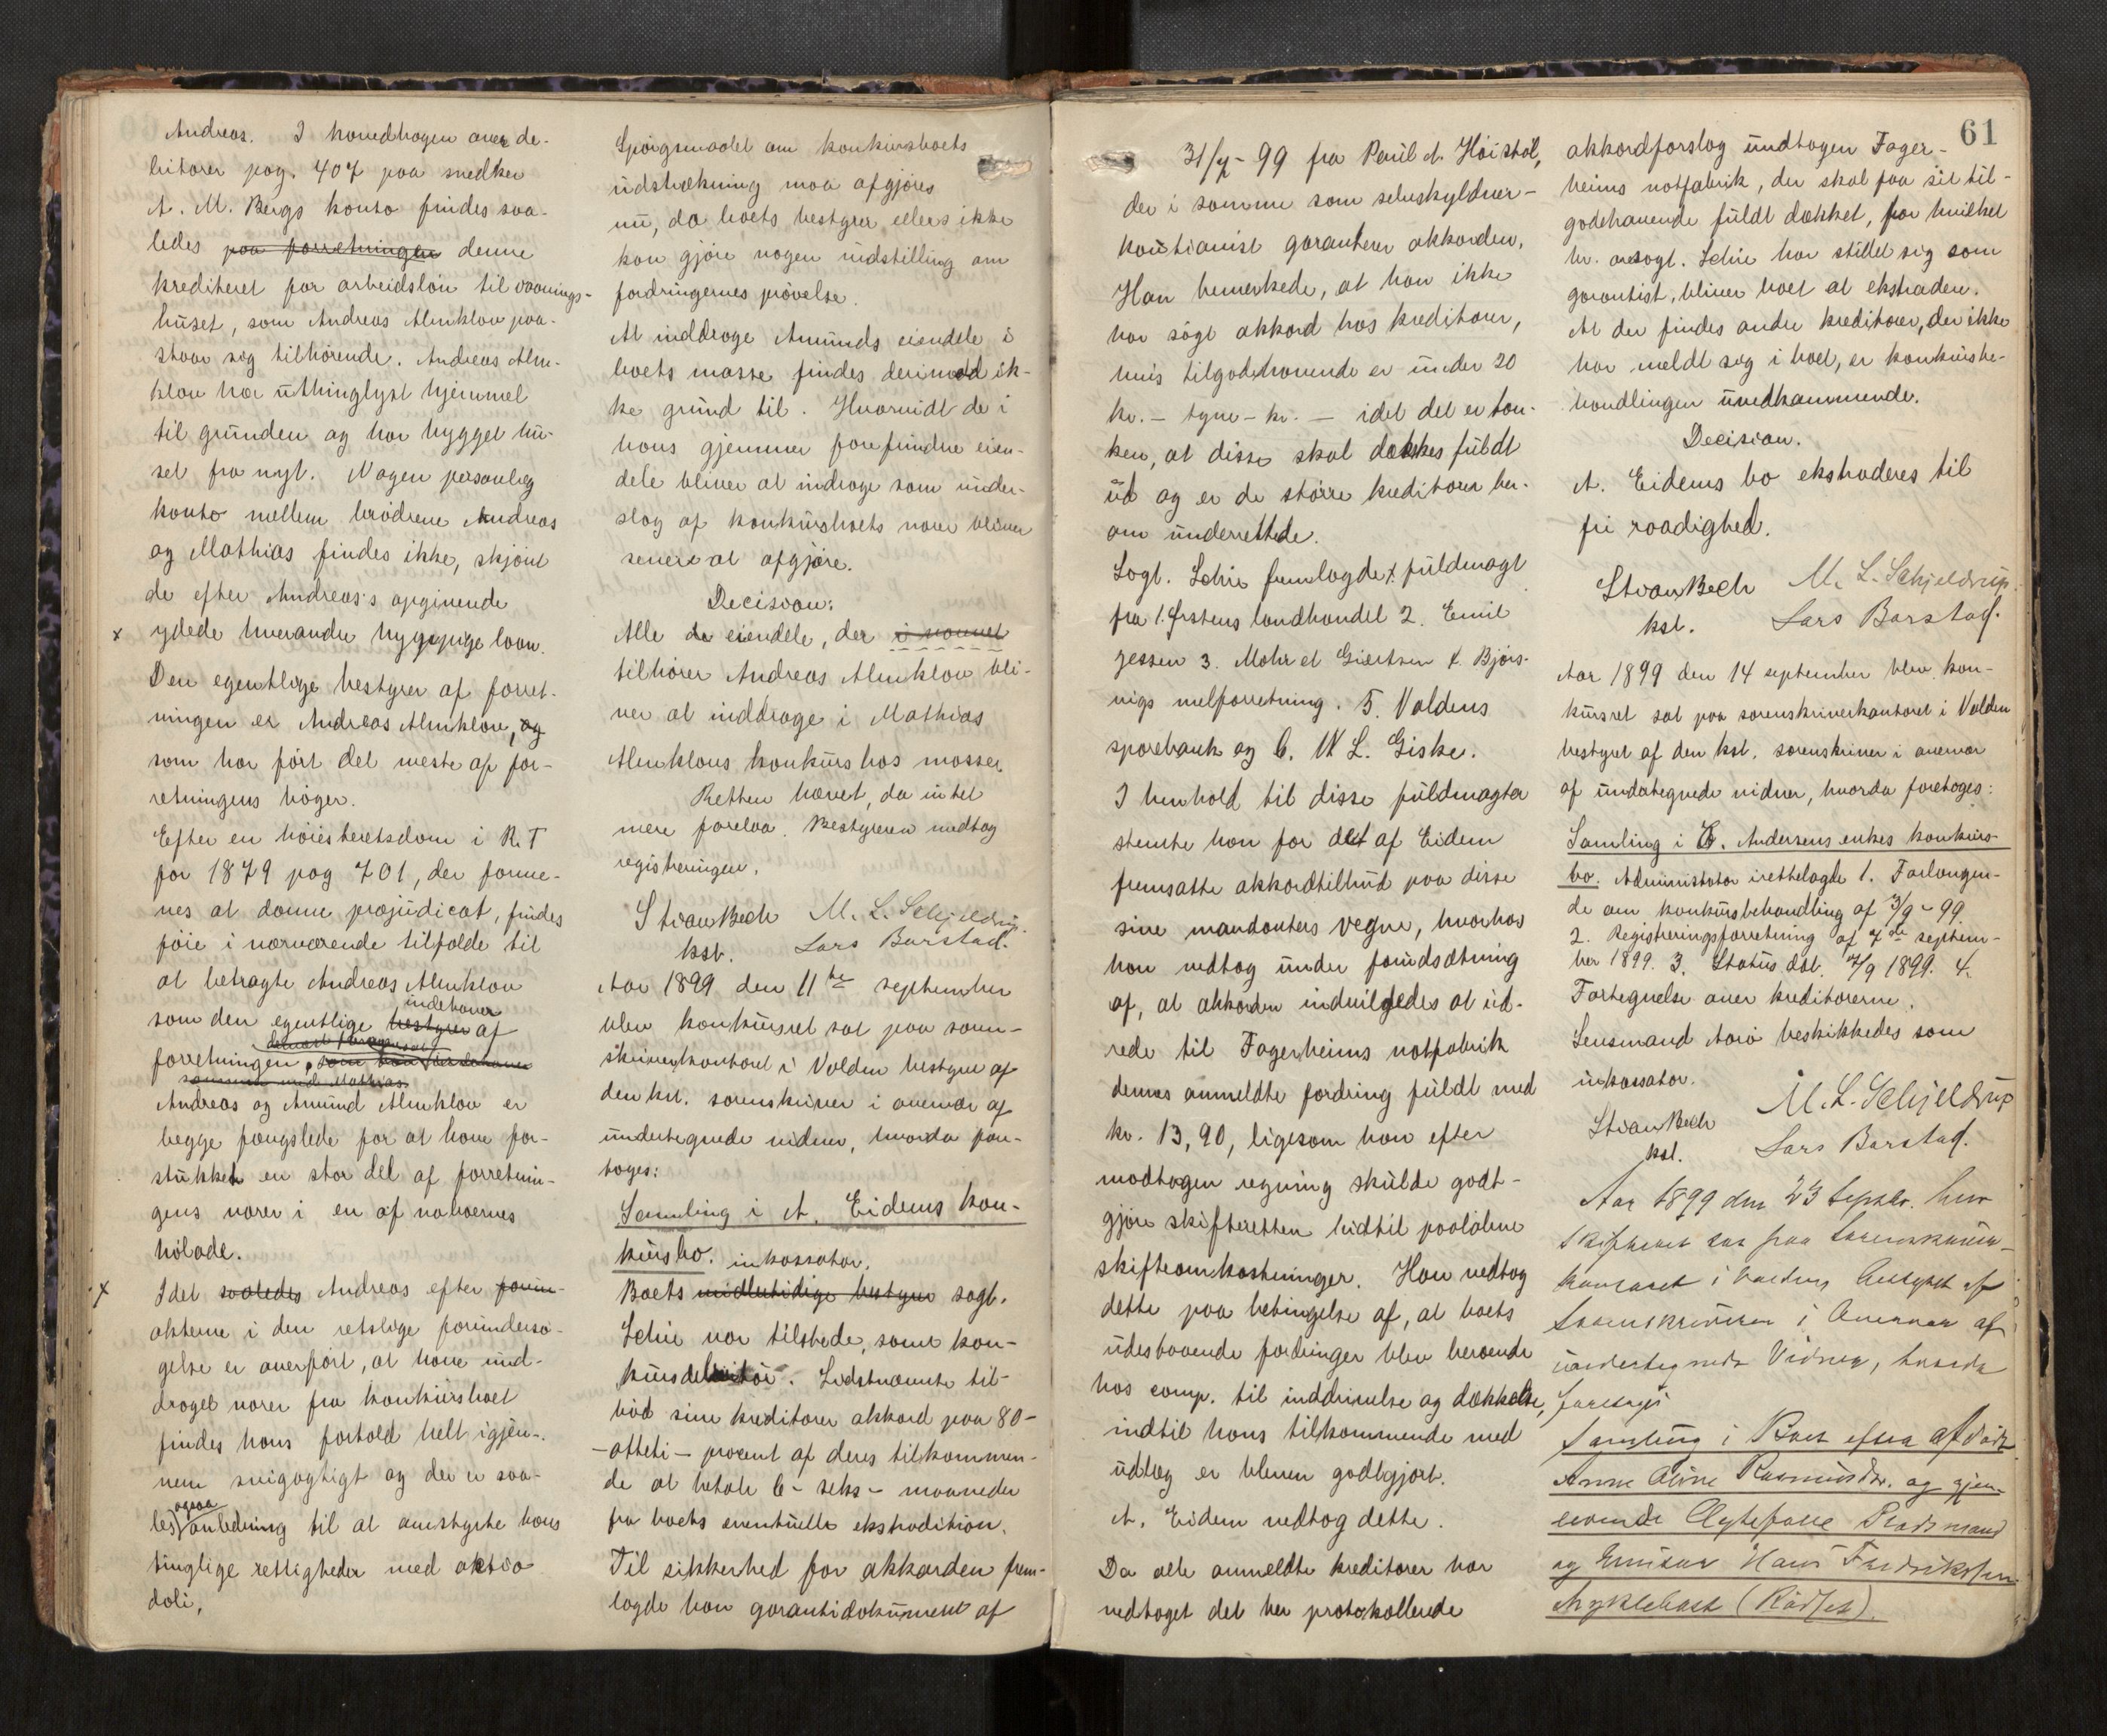 Andreas. I hovedbogen over de-
bitorer pag. 407 paa snedker
A. M. Bergs konto findes saa-
ledes paa forretningen denne
krediteret for arbeidsløn til vaanings-
huset, som Andreas Almklov paa-
staar sig tilhørende. Andreas Alm-
klov har uthinglyst hjemmel
til grunden og har bygget hu-
set fra nyt. Nogen personlig
konto mellem brødrene Andreas
og Mathias findes ikke, skjønt
de efter Andreas's opgivende
x ydede hverandre hyppige laan.
Den egentlige bestyrer af forret-
ningen er Andreas Almklov, og
som har ført det meste af for-
retningens bøger.
Efter en høiesteretsdom i R.T
for 1879 pag 701, der forme-
nes at danne præjudicat, findes
føie i nærværende tilfælde til
at betragte Andreas Almklov
indehaver
som den egentlige bestyrer af
forretningen, som han
sammen med Mathias.
Andreas og Amund Almklov er
begge fængslede for at have for-
stukket en stor del af forretnin-
gens varer i en af naboernes
hølade.
x Idet saaledes Andreas efter
akterne i den retslige forundersø-
gelse er overført, at have ind-
draget varer fra konkursboet
findes hans forhold helt igjen-
nem svigagtigt og der er saa-
ogsaa
les anledning til at omstyrte hans
tinglige rettigheder med aktio
doli,
Spørgsmaalet om konkursboets
udstrækning maa afgjøres
nu, da boets bestyrer ellers ikke
kan gjøre nogen indstilling om
fordringernes prøvelse.
At inddrage Amunds eiendele i
boets masse findes derimod ik-
ke grund til. Hvorvidt de i
hans gjemmer forefundne eien-
dele bliver at inddrage som under-
slag af konkursboets varer bliver
senere at afgjøre.
Decision:
Alle de eiendele, der i navnet
tilhører Andreas Almklov bli-
ver at inddrage i Mathias
Almklovs konkurs hos massen
Retten hævet, da intet
mere forelaa. Bestyreren modtog
registreringen.
Stian Bech M. L. Schjeldrup.
kst. Lars Barstad.
Aar 1899 den 11te september
blev konkursret sat paa soren-
skriverkontoret i Volden bestyret af
den kst. sorenskriver i overvær af
undertegnede vidner, hvorda fore-
toges:
Samling i A. Eidems kon-
kursbo. inkassator.
Boets midlertidige bestyrer sagf.
Schie var tilstede, samt kon-
kursdebitor. Sidstnævnte til-
bød sine kreditorer akkord paa 80-
-otteti- procent af deres tilkommen-
de at betale 6- seks- maaneder
fra boets eventuelle ekstradition.
Til sikkerhed for akkorden frem-
lagde han garantidokument af
61
31/7-99 fra Paul A. Høistøl,
der i samme som selvskyldner-
kautionist garanterer akkorden,
Han bemerkede, at han ikke
har søgt akkord hos kreditorer,
hvis tilgodehavende er under 20
kr. - tyve - kr. - idet det er tan-
ken, at disse skal dækkes fuldt
ud og er de større kreditorer her-
om underrettede.
Sagf. Schie fremlagde fuldmagt
fra 1. Ørstens landhandel 2. Emil
Jessen 3. Mohr et Giertsen 4. Bjørs-
vigs melforretning. 5. Voldens
sparebank og 6. W L. Giske.
I henhold til disse fuldmagter
stemte han for det af Eidem
fremsatte akkordtilbud paa disse
sine mandanters vegne, hvorhos
han vedtog under forudsætning
af, at akkorden indvilgedes at ud-
rede til Fagerheims notfabrik
dennes anmeldte fordring fuldt med
kr. 13,90, ligesom han efter
modtagen regning skulde godt-
gjøre skifteretten hidtil paaløbne
skifteomkostninger. Han vedtog
dette paa betingelse af, at boets
udestaaende fordringer blev beroende
hos comp. til inddrivelse og dækkelse,
indtil hans tilkommende med
udlæg er bleven godtgjort.
A. Eidem vedtog dette.
Da alle anmeldte kreditorer har
vedtaget det her protokollerede
akkordforslag undtagen Fager-
heims notfabrik, der skal faa sit til-
godehavende fuldt dækket, for hvilket
hr. Schie har stillet sig som
garantist, bliver boet at ekstradere.
At der findes andre kreditorer, der ikke
har meldt sig i boet, er konkursbe-
handlingen uvedkommende.
Decision.
A. Eidems bo ekstraderes til
fri raadighed.
Stian Bech M. L. Schjeldrup.
kst. Lars Barstad.
Aar 1899 den 14 september blev kon-
kursret sat paa sorenskriverkontoret i Volden
bestyret af den kst. sorenskriver i overvær
af undertegnede vidner, hvorda foretoges:
Samling i Andersens enkes konkurs-
bo. Administrator irettelagde 1. Forlangen-
de om konkursbehandling af 3/9-99.
2. Registreringsforretning af 7de septem-
ber 1899. 3. Status dat. 7/9 1899. 4.
Fortegnelse over kreditorerne.
Lensmand Aarø beskikkedes som
inkassator.
Stian Bech M. L. Schjeldrup
kst. Lars Barstad.
Aar 1899 den 23 Septbr. blev
Skifteret sat paa Sorenskriver-
kontoret i Volden bestyret af
Sorenskriveren i Overvær af
undertegnede Vidner, hvorda
foretoges
Samling i Boet efter afdøde
Anne Oline Rasmusdr. og gjen-
levende Ægtefælle Pladsmand
og Enkem Hans Fredriksen
Myklebust (Rødset).